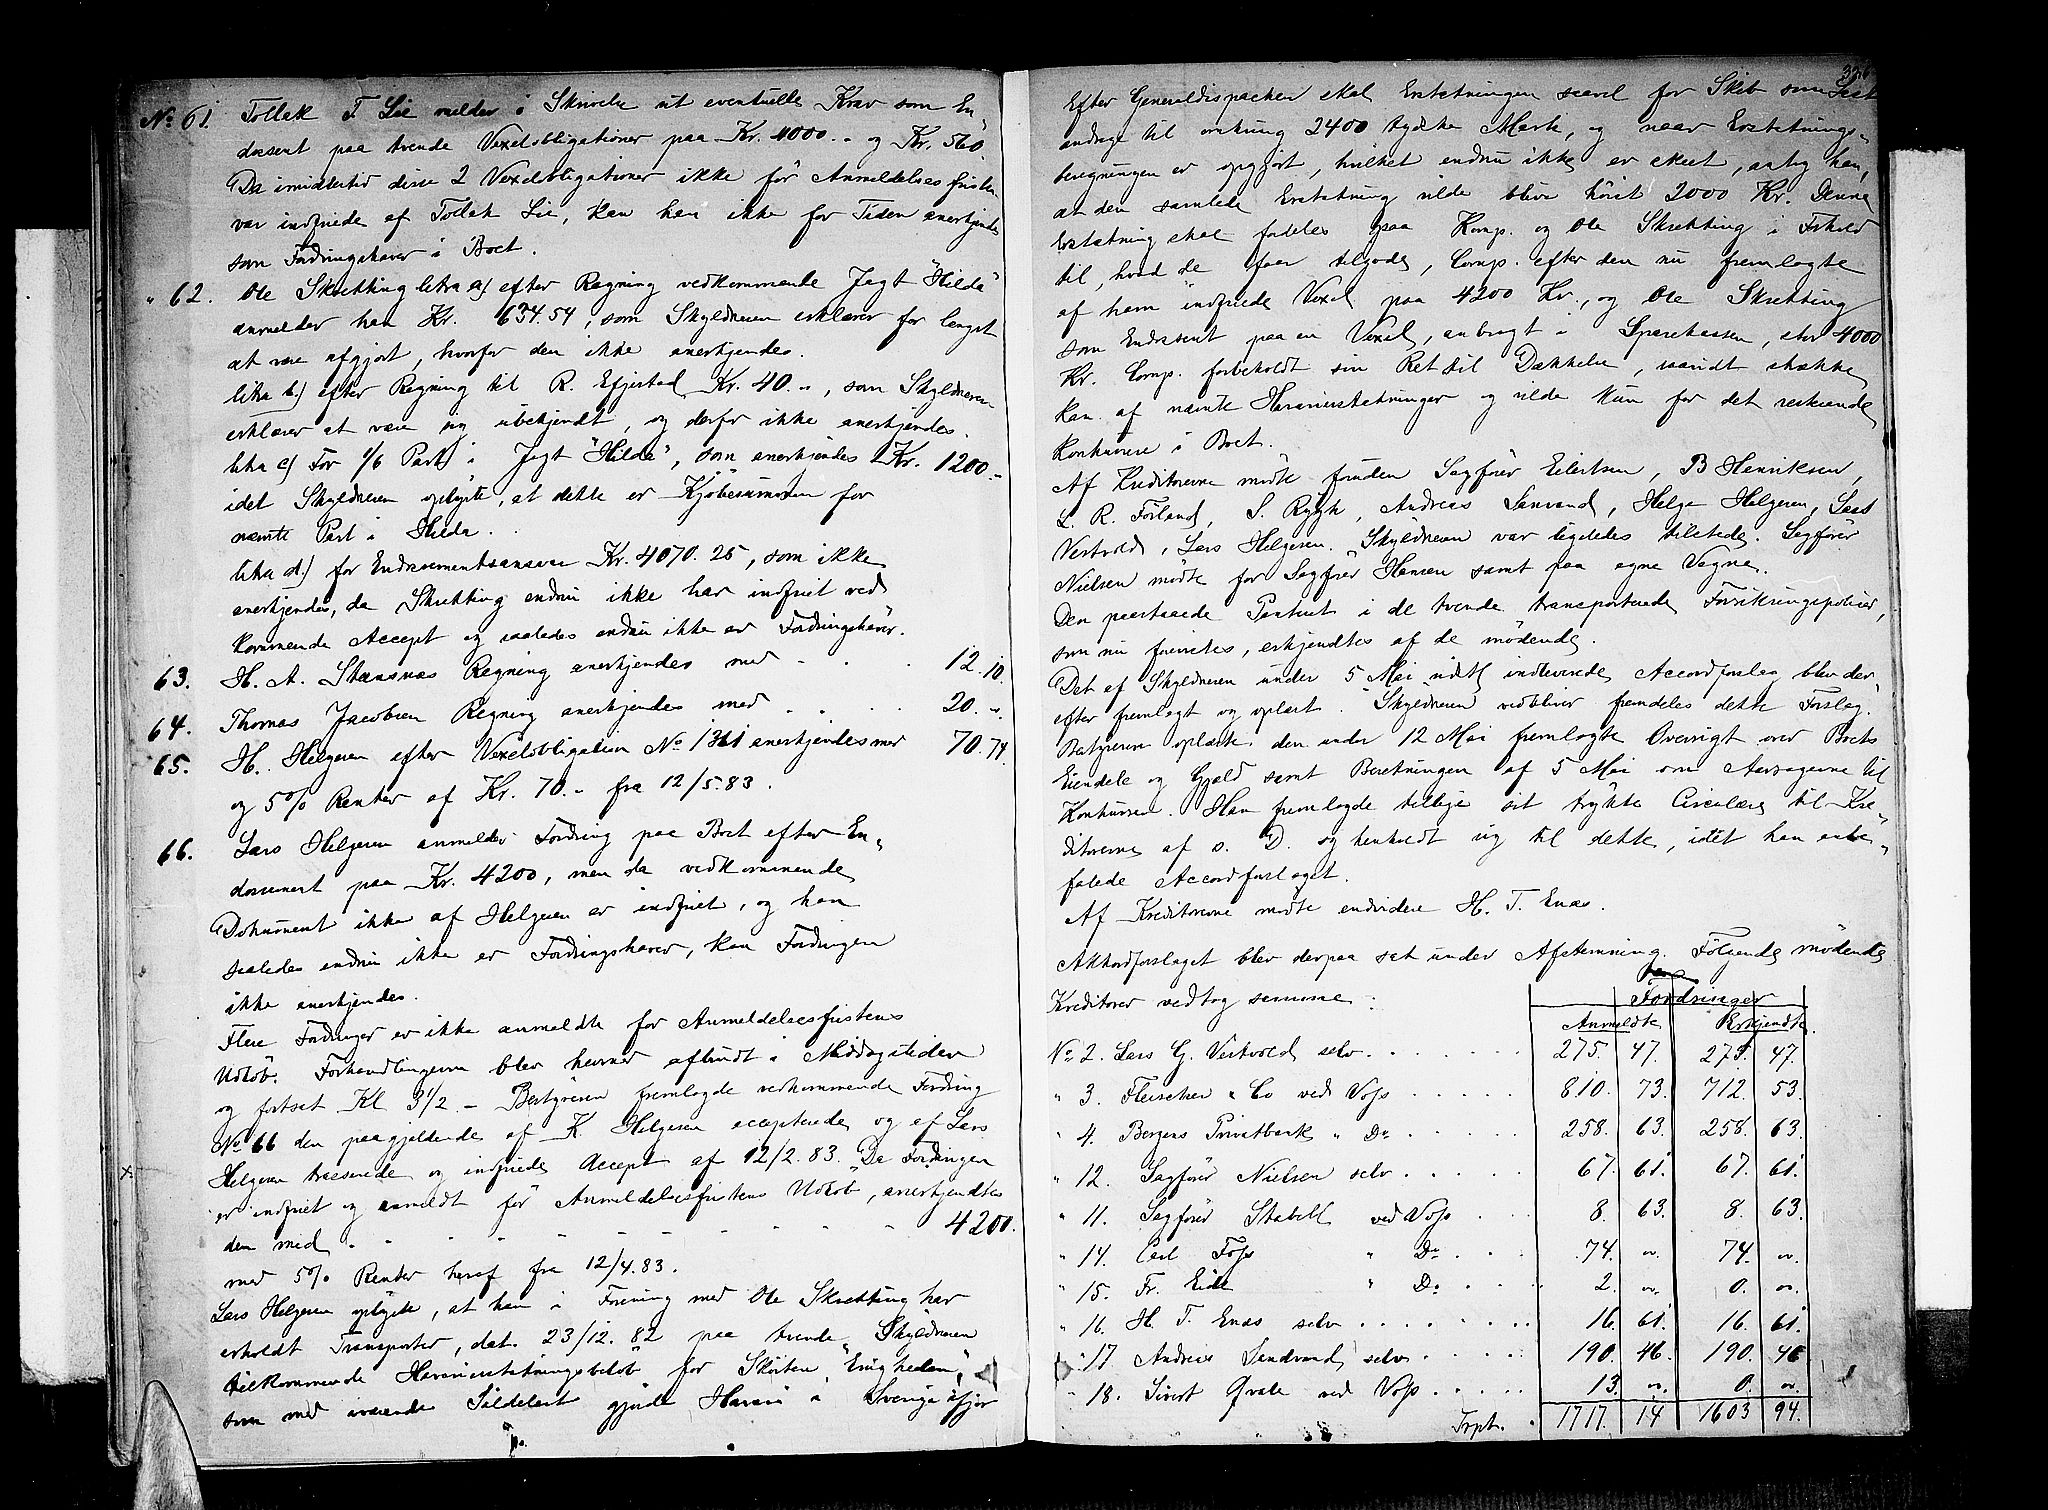 No 61. Tollak T Lie melder i Skrivelse sit eventuelle Krav som En-
dossent paa tvende Vexelobligationer paa Kr. 4000.- og Kr. 560.
Da imidlertid disse 2 Vexelobligationer ikke før Anmeldelsesfristen
var indfriede af Tollak Lie, kan han ikke for Tiden anerkjendes
som Fordringshaver i Boet.
" 62. Ole Skretting litra a) efter Regning vedkommende Jagt "Hilda"
anmelder han Kr. 634.54, som Skyldneren erklærer for længst
at være afgjort, hvorfor den ikke anerkjendes.
litra b.) efter Regning til R. Efjestad Kr. 40.-, som Skyldneren
erklærer at være sig ubekjendt, og derfor ikke anerkjendes.
litra c) For 1/6 Part i Jagt "Hilda", som anerkjendes Kr. 1200.-
idet Skyldneren oplyste, at dette er Kjøbesummen for
nævnte Part i Hilda.
litra d.) for Endossementsansvar Kr. 4070.25, som ikke
anerkjendes, da Skretting endnu ikke har indfriet ved
kommende Accept og saaledes endnu ikke er Fordringshaver.
63. H. A. Stensnæs Regning anerkjendes med . . . 12.10.
64. Thomas Jacobsen Regning anerkjendes med . . . 20.-.
65. H. Helgesen efter Vexelobligation No 1361 anerkjendes med 70.74.
og 5% Renter af Kr. 70.- fra 12/5.83.
66. Lars Helgesen anmelder Fordring paa Boet efter En-
dossement paa Kr. 4200, men da vedkommende
Dokument ikke af Helgesen er indfriet, og han
saaledes endnu ikke er Fordringshaver, kan Fordringen
ikke anerkjendes.
Flere Fordringer er ikke anmeldte før Anmeldelsesfristens
Udløb. Forhandlingerne blev herunder afbrudt i Middagstiden
og fortsat Kl 3 1/2 - Bestyreren fremlagde vedkommende Fordring
No 66 den paagjeldende af K. Helgesen accepterede og af Lars
x. Helgesen trasserede og indfriede Accept af 12/2.83. Da Fordringen
er indfriet og anmeldt før Anmeldelsesfristens Udløb, anerkjendtes
den med . - - - - - - - - 4200.
med 5% Renter heraf fra 12/4.83.
Lars Helgesen oplyste, at han i Forening med Ole Skretting har
erholdt Transporter, dat. 23/12.82 paa tvende Skyldneren
tilkommende Havarierstatningsbeløb for Skøiten "Enigheden",
som med iværende Sildelast gjorde Havari i Sverige ifjor

336
Efter Generaldispachen skal Erstatningen saavel for Skib som Last
andrage til omkring 2400 tydske Mark, og naar Erstatnings-
beregningen er opgjort, hvilket endnu ikke er skeet, antog han,
at den samlede Erstatning vilde blive høist 2000 Kr. Denne
Erstatning skal fordeles paa Komp. og Ole Skretting i Forhold
til, hvad de faar tilgode, Comp. efter den nu fremlagte
af ham indfriede Vexel paa 4200 Kr., og Ole Skretting
som Endossent paa en Vexel, anbragt i Sparekassen, stor 4000
Kr. Comp. forbeholdt sin Ret til Dækkelse, saavidt strække
kan af nævnte Havarierstatninger og vilde kun for det resterende
konkurrere i Boet.
Af Kreditorerne mødte foruden Sagfører Eilertsen, B Henriksen,
L. R. Førland, S. Rygh, Andreas Sandvand, Helge Helgesen, Lars
Vestvold, Lars Helgesen. Skyldneren var ligeledes tilstede. Sagfører
Nielsen mødte for Sagfører Hansen samt paa egne Vegne.
Den paastaaede Panteret i de tvende transporterede Forsikringspoliser,
som nu foreviстes, erkjendtes af de mødende.
Det af Skyldneren under 5 Mai sidstl indleverede Accordforslag blev der-
efter fremlagt og oplæst. Skyldneren vedbliver fremdeles dette Forslag.
Bestyreren oplæste den under 12 Mai fremlagte Oversigt over Boets
Eiendele og Gjæld samt Beretningen af 5 Mai om Aarsagerne til
Konkursen. Han fremlagde tillige sit trykte Circulære til Kre-
ditorerne af s. D. og henholdt sig til dette, idet han anbe-
falede Accordforslaget.
Af Kreditorerne mødte endvidere H. T. Enæs.
Akkordforslaget blev derpaa sat under Afstemning. Følgende mødende
Kreditorer vedtog samme:
Fordringer
Anmeldte Erkjendte.
No 2. Lars G. Vestvold selv . . . . 275. 47. 275. 47.
" 3. Fleischer & Co ved Voss . . . . . 810. 73. 712. 53.
" 4. Bergens Privatbank " Do . . . . . 258. 63. 258. 63.
" 12. Sagfører Nielsen selv . . . . . 67. 61. 67. 61.
" 11. Sagfører Stabell ved Voss . . 8. 63. 8. 63.
" 14. Carl Foss " Do . . . 74. " 74. "
" 15. Fr. Eide " Do . . . 2. " 0. "
" 16. H. T. Enæs selv . . . . . . . 16. 61. 16. 61.
" 17. Andreas Sandvand selv . . . . 190. 46. 190. 46
" 18. Sivert Qvale ved Voss . . . . . 13. " 0. "
Trpt. . 1717. 14 1603 94.